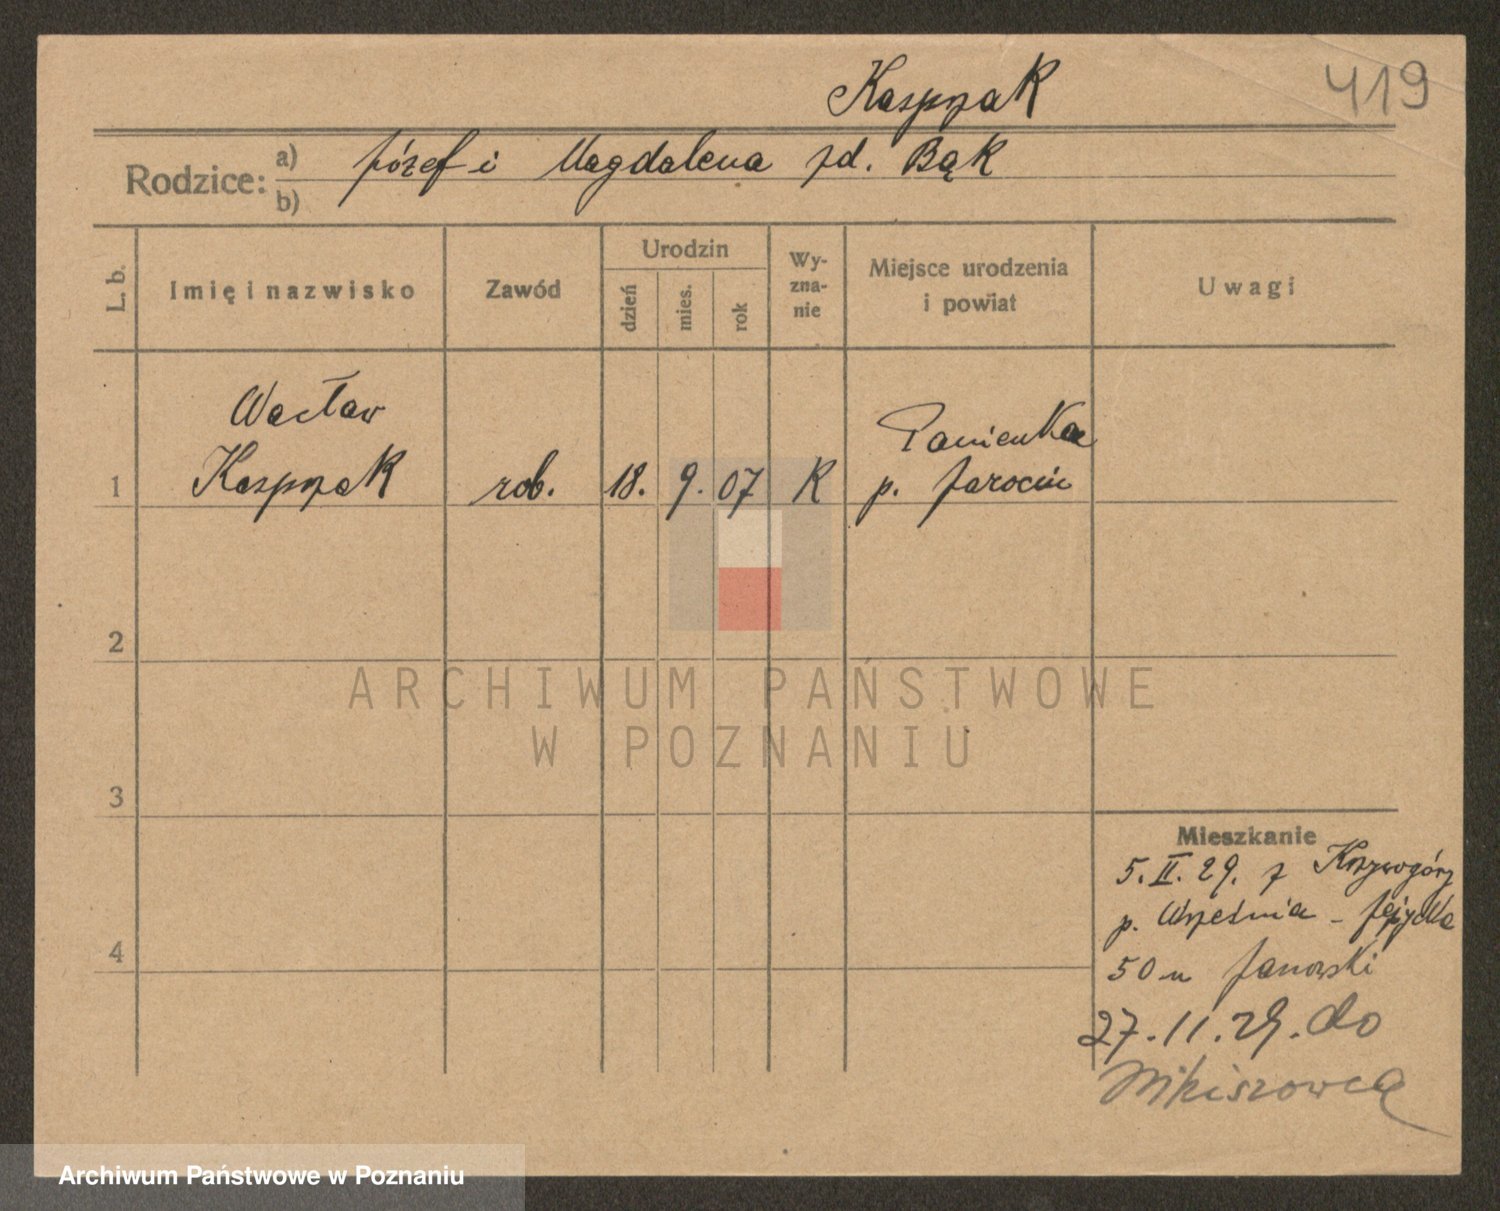 Kasprzak
419
Rodzice: a) Józef i Magdalena zd. Bąk
b)
L. b.
Imię i nazwisko
Zawód
Urodzin
dzień
mies.
rok
Wy-
zna-
nie
Miejsce urodzenia
i powiat
Uwagi
Wacław
Panienka
1 Kasprzak rob. 18. 9. 07 K p. Jarocin
2
ARCHIWUM PAŃSTWOWE
W POZNANIU
3
Mieszkanie
5.II.29. z
p. Września -
4
50 Janowski
27.11.29. do
Archiwum Państwowe w Poznaniu